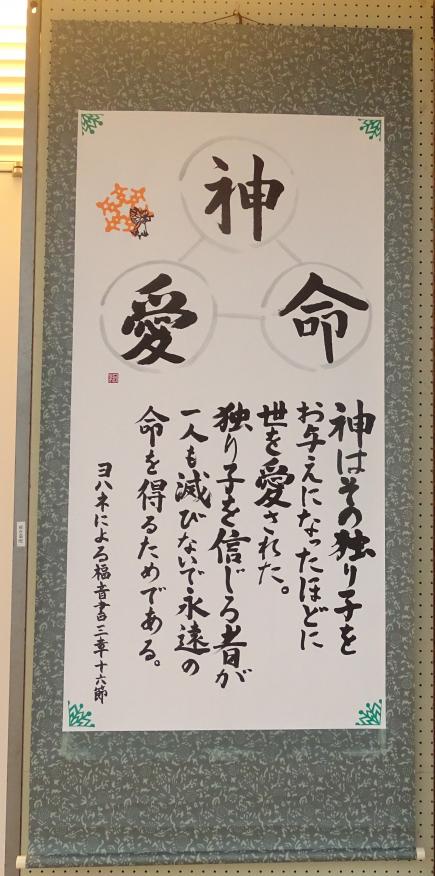 神
愛
命
神はその独り子を
お与えになったほどに
世を愛された。
独り子を信じる者が
一人も滅びないで永遠の
命を得るためである。
ヨハネによる福音書三章十六節